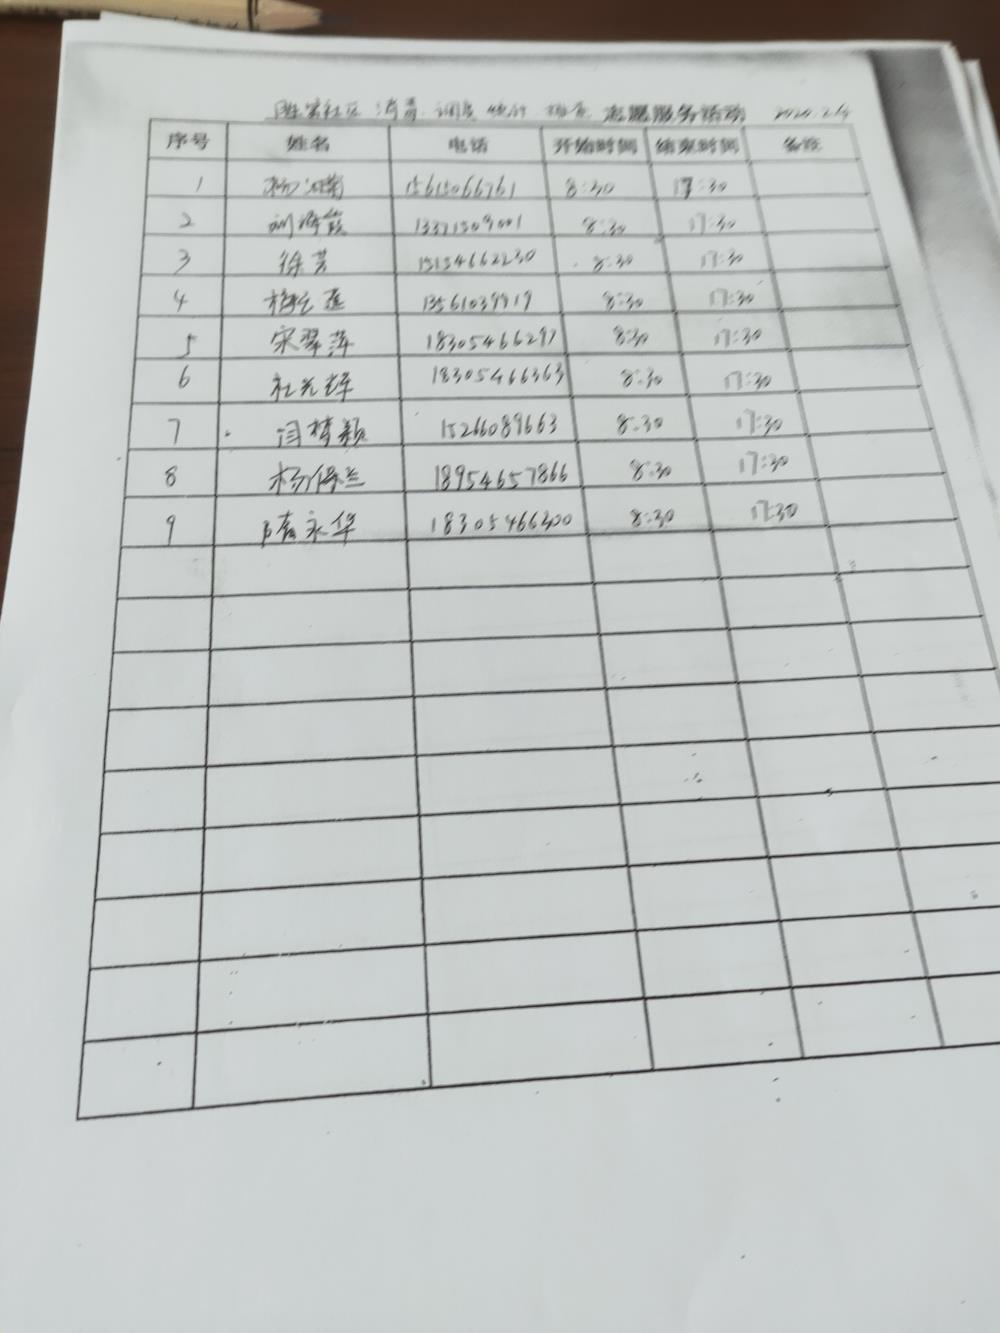 社区 消毒 志愿服务活动
序号 姓名 电话 开始时间 结束时间 备注
1 15615066761 8:30 17:30
2 刘海霞 8:30 17:30
3 徐芳 15154662230 8:30 17:30
4 13561039919 8:30 17:30
5 宋翠萍 18305466297 8:30 17:30
6 杜光辉 18305466363 8:30 17:30
7 闫梦颖 15266089663 8:30 17:30
8 杨保兰 18954657866 8:30 17:30
9 隋永华 18305466300 8:30 17:30